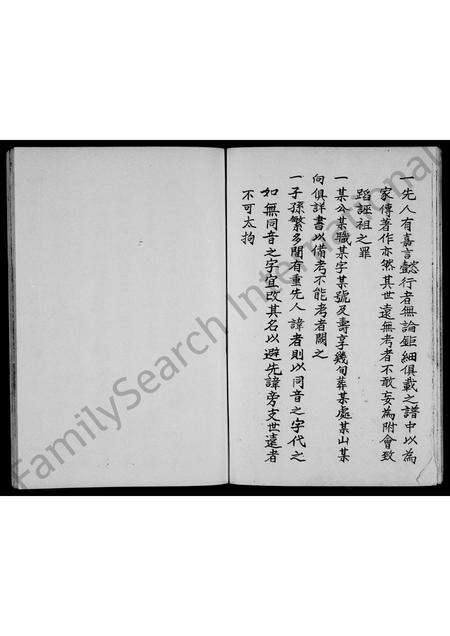 一先人有嘉言懿行者無論鉅細俱載之譜中以為
家傳著作亦然其世遠無考者不敢妄為附會致
蹈誣祖之罪
一某公某職某字某號及壽享幾旬葬某處某山某
向俱詳書以備考不能考者闕之
一子孫繁多間有重先人諱者則以同音之字代之
如無同音之字宜改其名以避先諱旁支世遠者
不可太拘
FamilySearch International